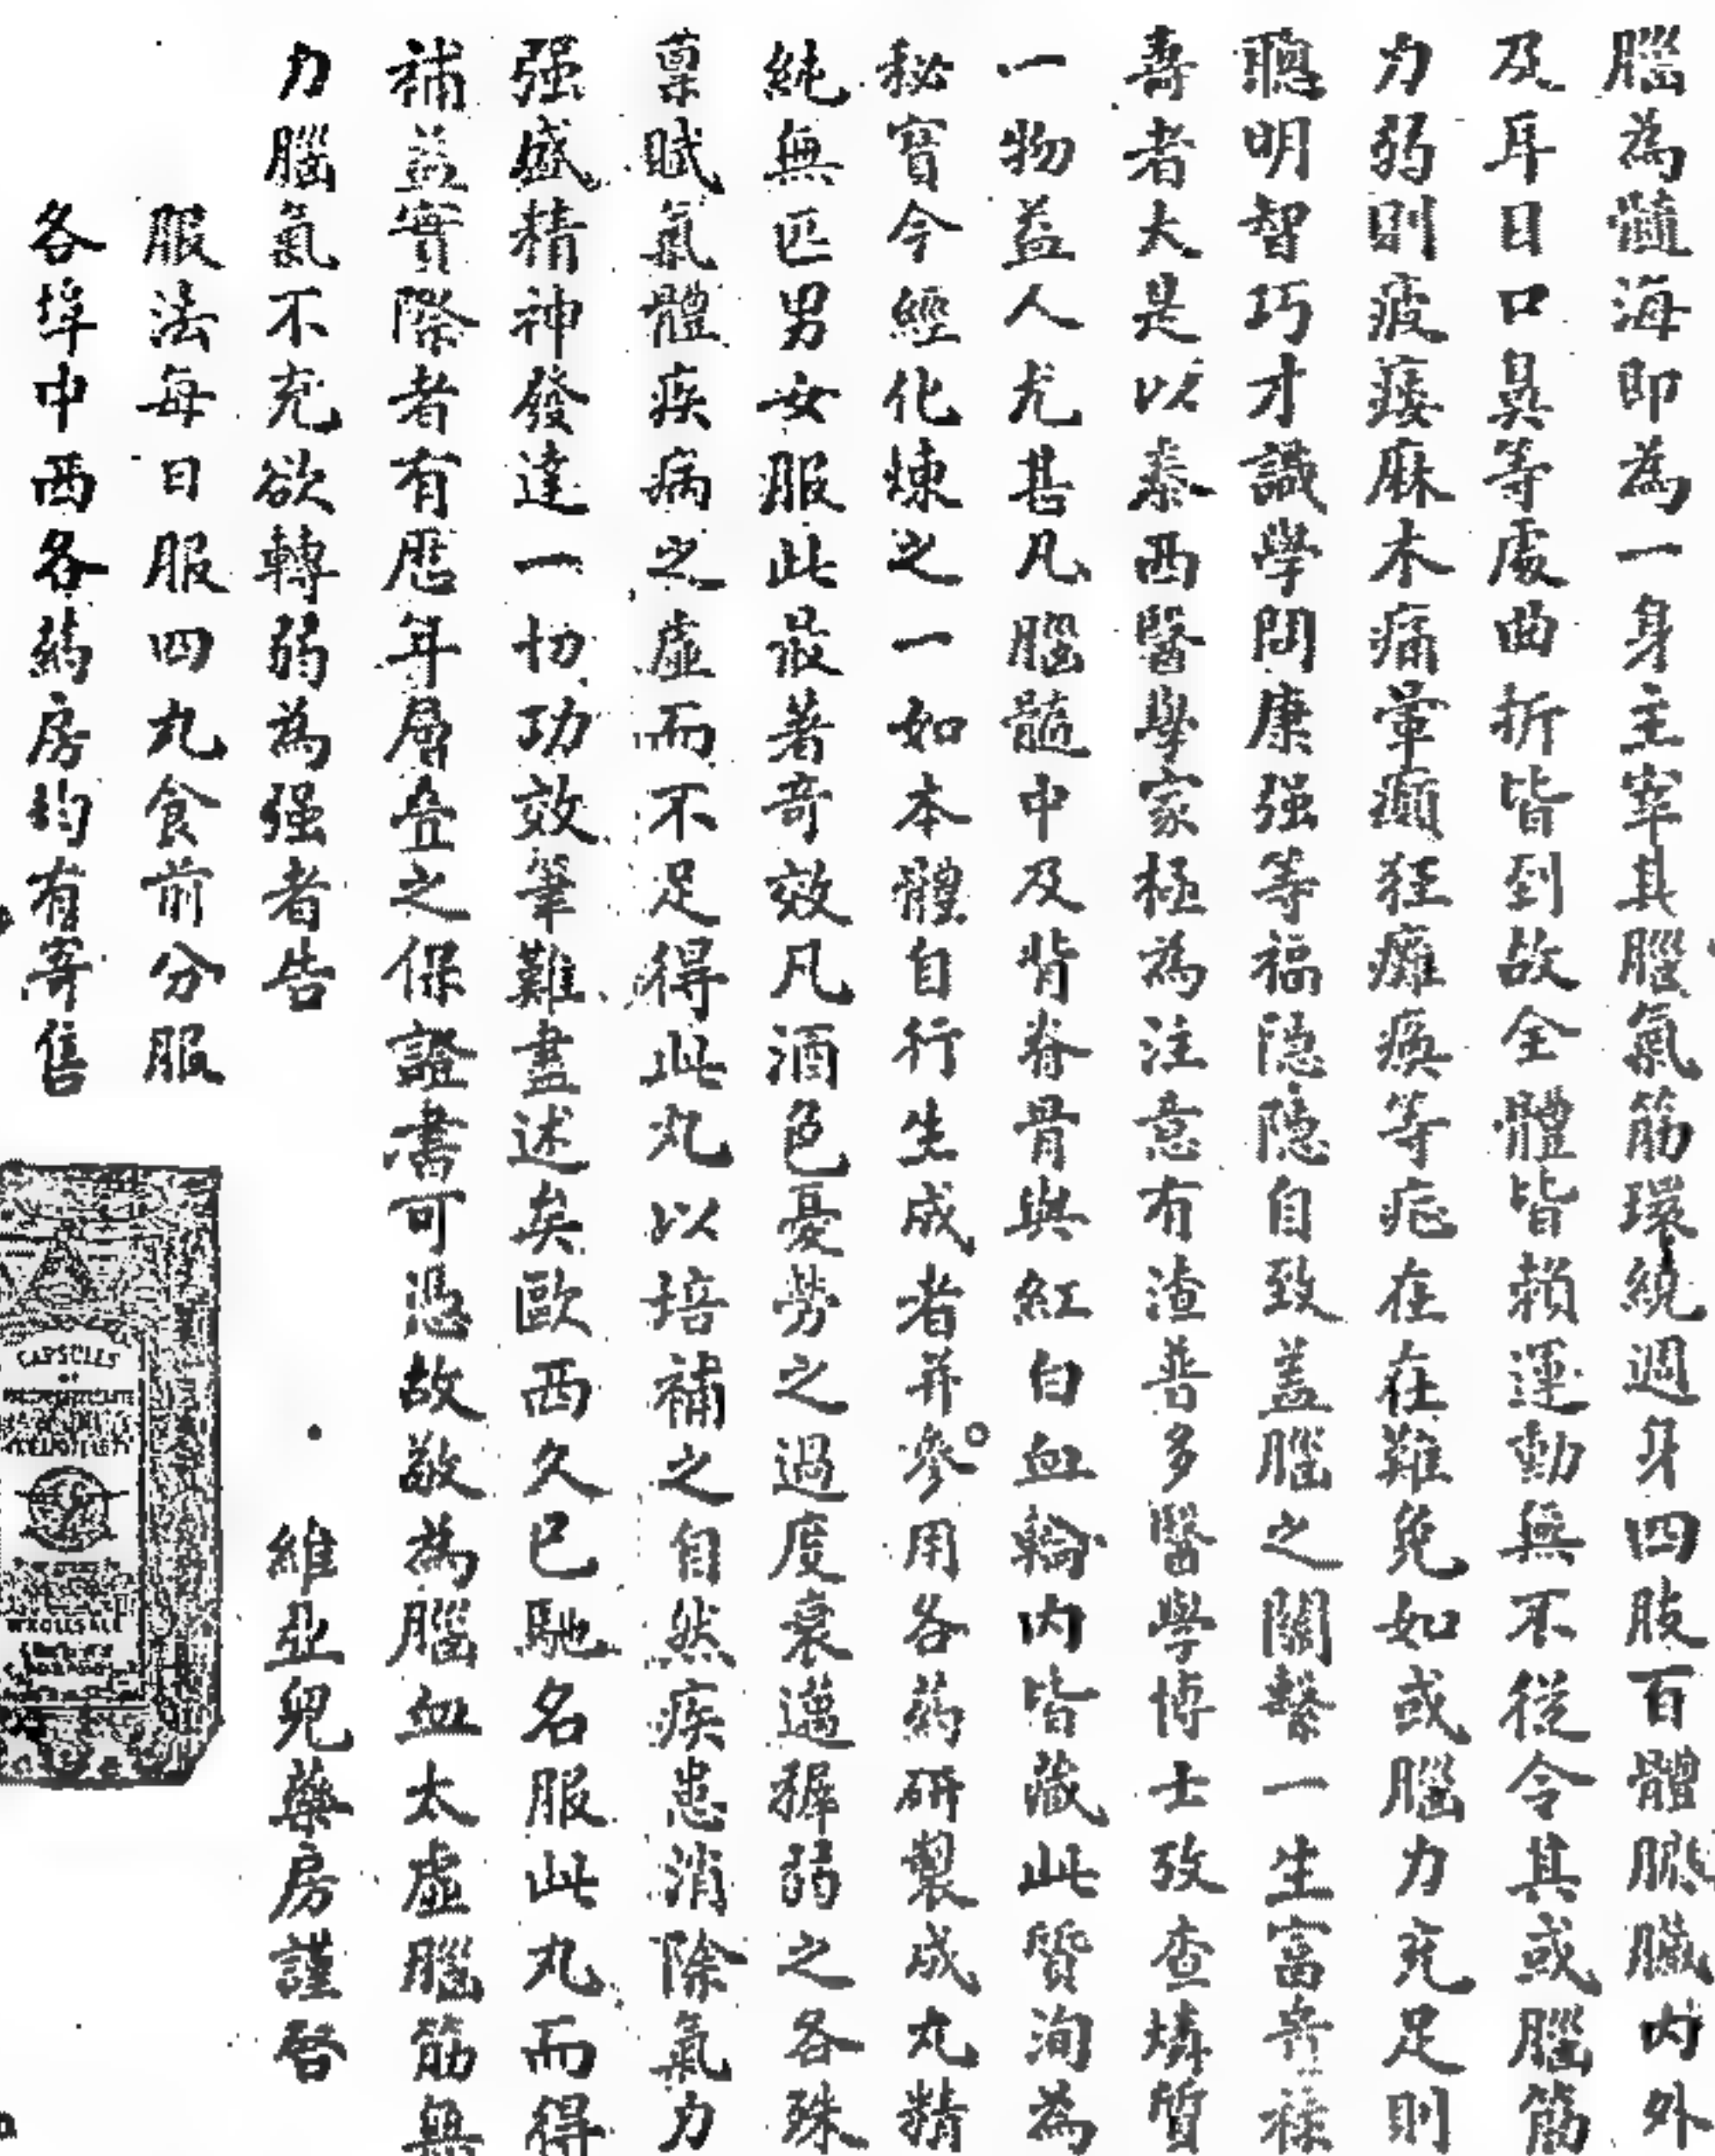 腦為髓海即為一身主宰其腦氣筋環繞週身四肢百體臟腑內外
及耳目口鼻等處曲折皆到故全體皆賴運動無不從令其或腦筋
力弱則疲痿麻木痛暈癲狂癱瘓等症在在難免如或腦力充足則
聰明智巧才識學問康强等福隐隐自致盖腦之關繫一生富夀祿
夀者大是以泰西醫學家極為注意有渣普多醫學博士攷查燐質
一物益人尤甚凡腦髓中及背脊骨與紅白血輪内皆藏此質洵為
秘寳今經化煉之一如本體自行生成者并參用各葯研製成丸精
純無匹男女服此最著奇效凡酒色憂勞之過度衰邁穉弱之各殊
禀賦氣體疾病之虛而不足得此丸以培補之自然疾患消除氣力
强盛精神發達一切功效筆難盡述矣歐西久已馳名服此丸而得
補益實際者有歷年層叠之保證書可憑故敬為腦血太虛腦筋無
力腦氣不充欲轉弱為强者告
維亞兒藥房謹啓
服法每日服四丸食前分服
各埠中西各葯房均有寄售
CAPSULES
WHOLESALE